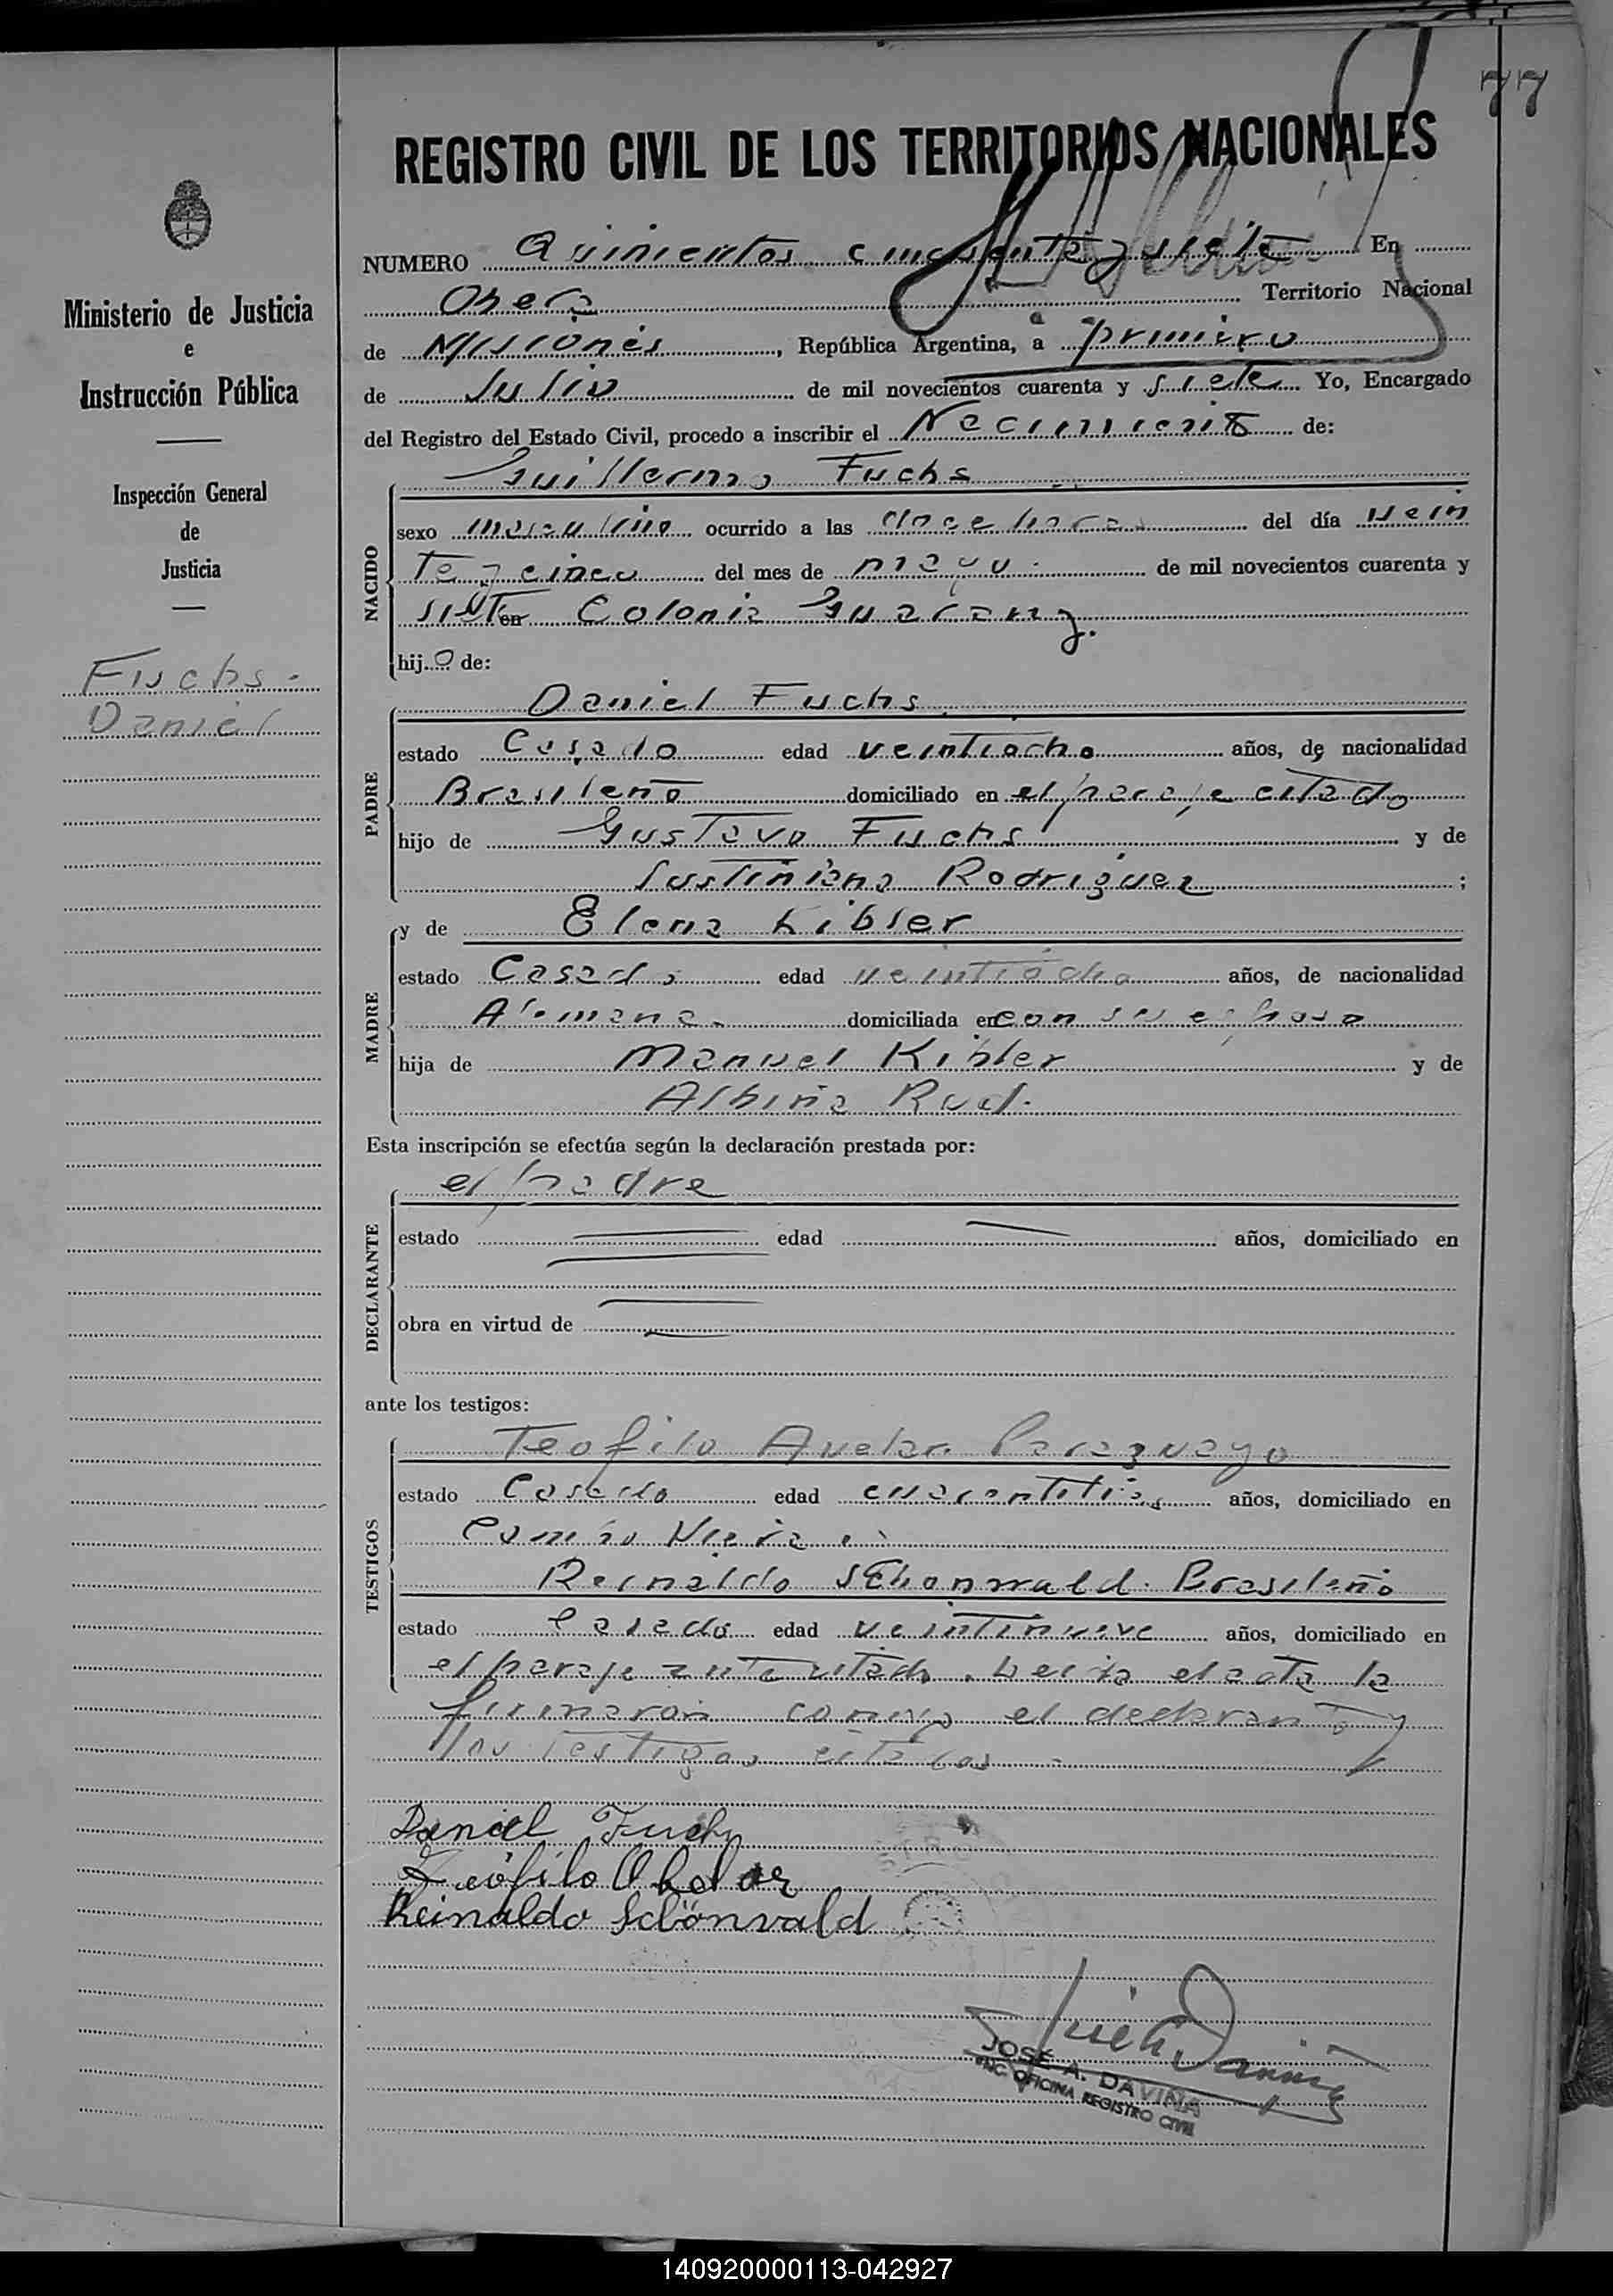 77
REGISTRO CIVIL DE LOS TERRITORIOS NACIONALES
NUMERO Quinientos cincuenta y siete En
Obera Territorio Nacional
de Misiones, República Argentina, a primero
de Julio de mil novecientos cuarenta y siete Yo, Encargado
del Registro del Estado Civil, procedo a inscribir el Nacimiento de:
Guillermo Fuchs
sexo masculino ocurrido a las doce horas del día vein
te y cinco del mes de mayo de mil novecientos cuarenta y
siete en Colonia Guarany.
hijo de:
NACIDO
Daniel Fuchs
estado Casado edad veintiocho años, de nacionalidad
Brasileño domiciliado en el paraje citado
hijo de Gustavo Fuchs y de
Justiniana Rodriguez ;
PADRE
y de Elena Kibler
estado Casada edad veintiocho años, de nacionalidad
Alemana domiciliada en con su esposo
hija de Manuel Kibler y de
Albina Rud.
MADRE
Esta inscripción se efectúa según la declaración prestada por:
el padre
estado edad años, domiciliado en
obra en virtud de
DECLARANTE
ante los testigos:
Teofilo Avelar Paraguayo
estado Casado edad años, domiciliado en
Campo Viera
Reinaldo Schonwald. Brasileño
estado Casado edad veintinueve años, domiciliado en
el paraje ante citado. el acta la
firmaron conmigo el declarante y
los testigos citados
TESTIGOS
Daniel Fuchs
Teófilo Abelar
Reinaldo Schönvald
JOSÉ A. DAVIÑA
ENC. OFICINA REGISTRO CIVIL
Ministerio de Justicia
e
Instrucción Pública
Inspección General
de
Justicia
Fuchs -
Daniel
140920000113-042927